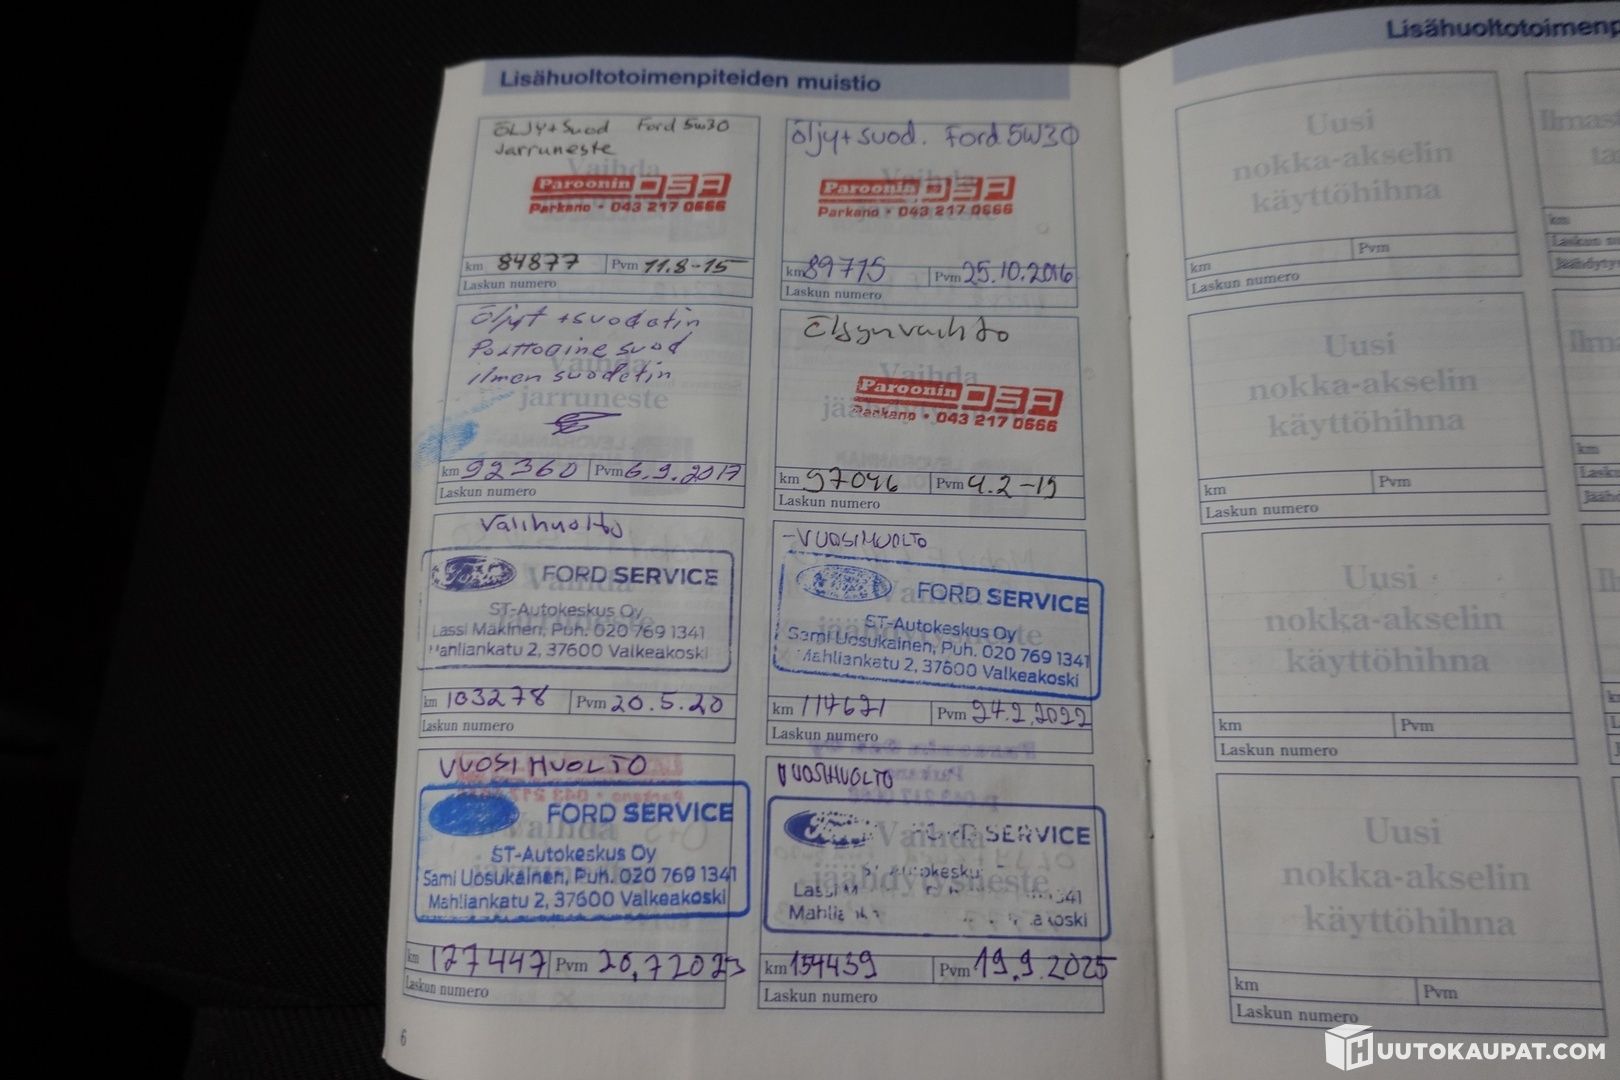 Lisähuoltotoimenpiteiden muistio
ÖLJY+suod Ford 5w30
Jarruneste
Vaihda
Paroonin OSA
Parkano • 043 217 0666
km 84877 Pvm 11.8-15
Laskun numero
Öljy+suod. Ford 5W30
Paroonin OSA
Parkano • 043 217 0666
km 89715 Pvm 25.10.2016
Laskun numero
Öljyt + suodatin
Polttoaine suod
ilman suodatin
Vaihda
jarruneste
km 92360 Pvm 6.9.2017
Laskun numero
Öljynvaihto
Vaihda
Paroonin OSA
Parkano • 043 217 0666
km 97046 Pvm 4.2-19
Laskun numero
Välihuolto
FORD SERVICE
Vaihda
ST-Autokeskus Oy
jarruneste
Lassi Mäkinen, Puh. 020 769 1341
Mahliankatu 2, 37600 Valkeakoski
km 103278 Pvm 20.5.20
Laskun numero
-VUOSIHUOLTO
FORD SERVICE
Vaihda
ST-Autokeskus Oy
jäähdytysneste
Sami Uosukainen, Puh. 020 769 1341
Mahliankatu 2, 37600 Valkeakoski
km 114671 Pvm 24.2.2022
Laskun numero
VUOSIHUOLTO
FORD SERVICE
Vaihda
ST-Autokeskus Oy
Sami Uosukainen, Puh. 020 769 1341
Mahliankatu 2, 37600 Valkeakoski
km 127447 Pvm 20.7 2023
Laskun numero
VUOSIHUOLTO
SERVICE
Vaihda
jäähdytysneste
Lassi
km 154439 Pvm 19.9.2025
Laskun numero
6
Lisähuoltotoimenp
Uusi
nokka-akselin
käyttöhihna
km Pvm
Laskun numero
Uusi
nokka-akselin
käyttöhihna
km Pvm
Laskun numero
Uusi
nokka-akselin
käyttöhihna
km Pvm
Laskun numero
Uusi
nokka-akselin
käyttöhihna
km Pvm
Laskun numero
Ilmas
ta
km
HUUTOKAUPAT.COM